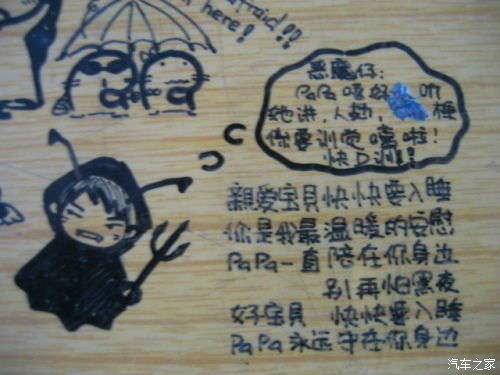 afraid!!
here!!
恶魔仔:
PaPa唔好 听
她讲,人哋,
快D训!!
亲爱宝贝快快要入睡
你是我最温暖的安慰
PaPa一直陪在你身边
别再怕黑夜
好宝贝 快快要入睡
PaPa永远守在你身边
汽车之家